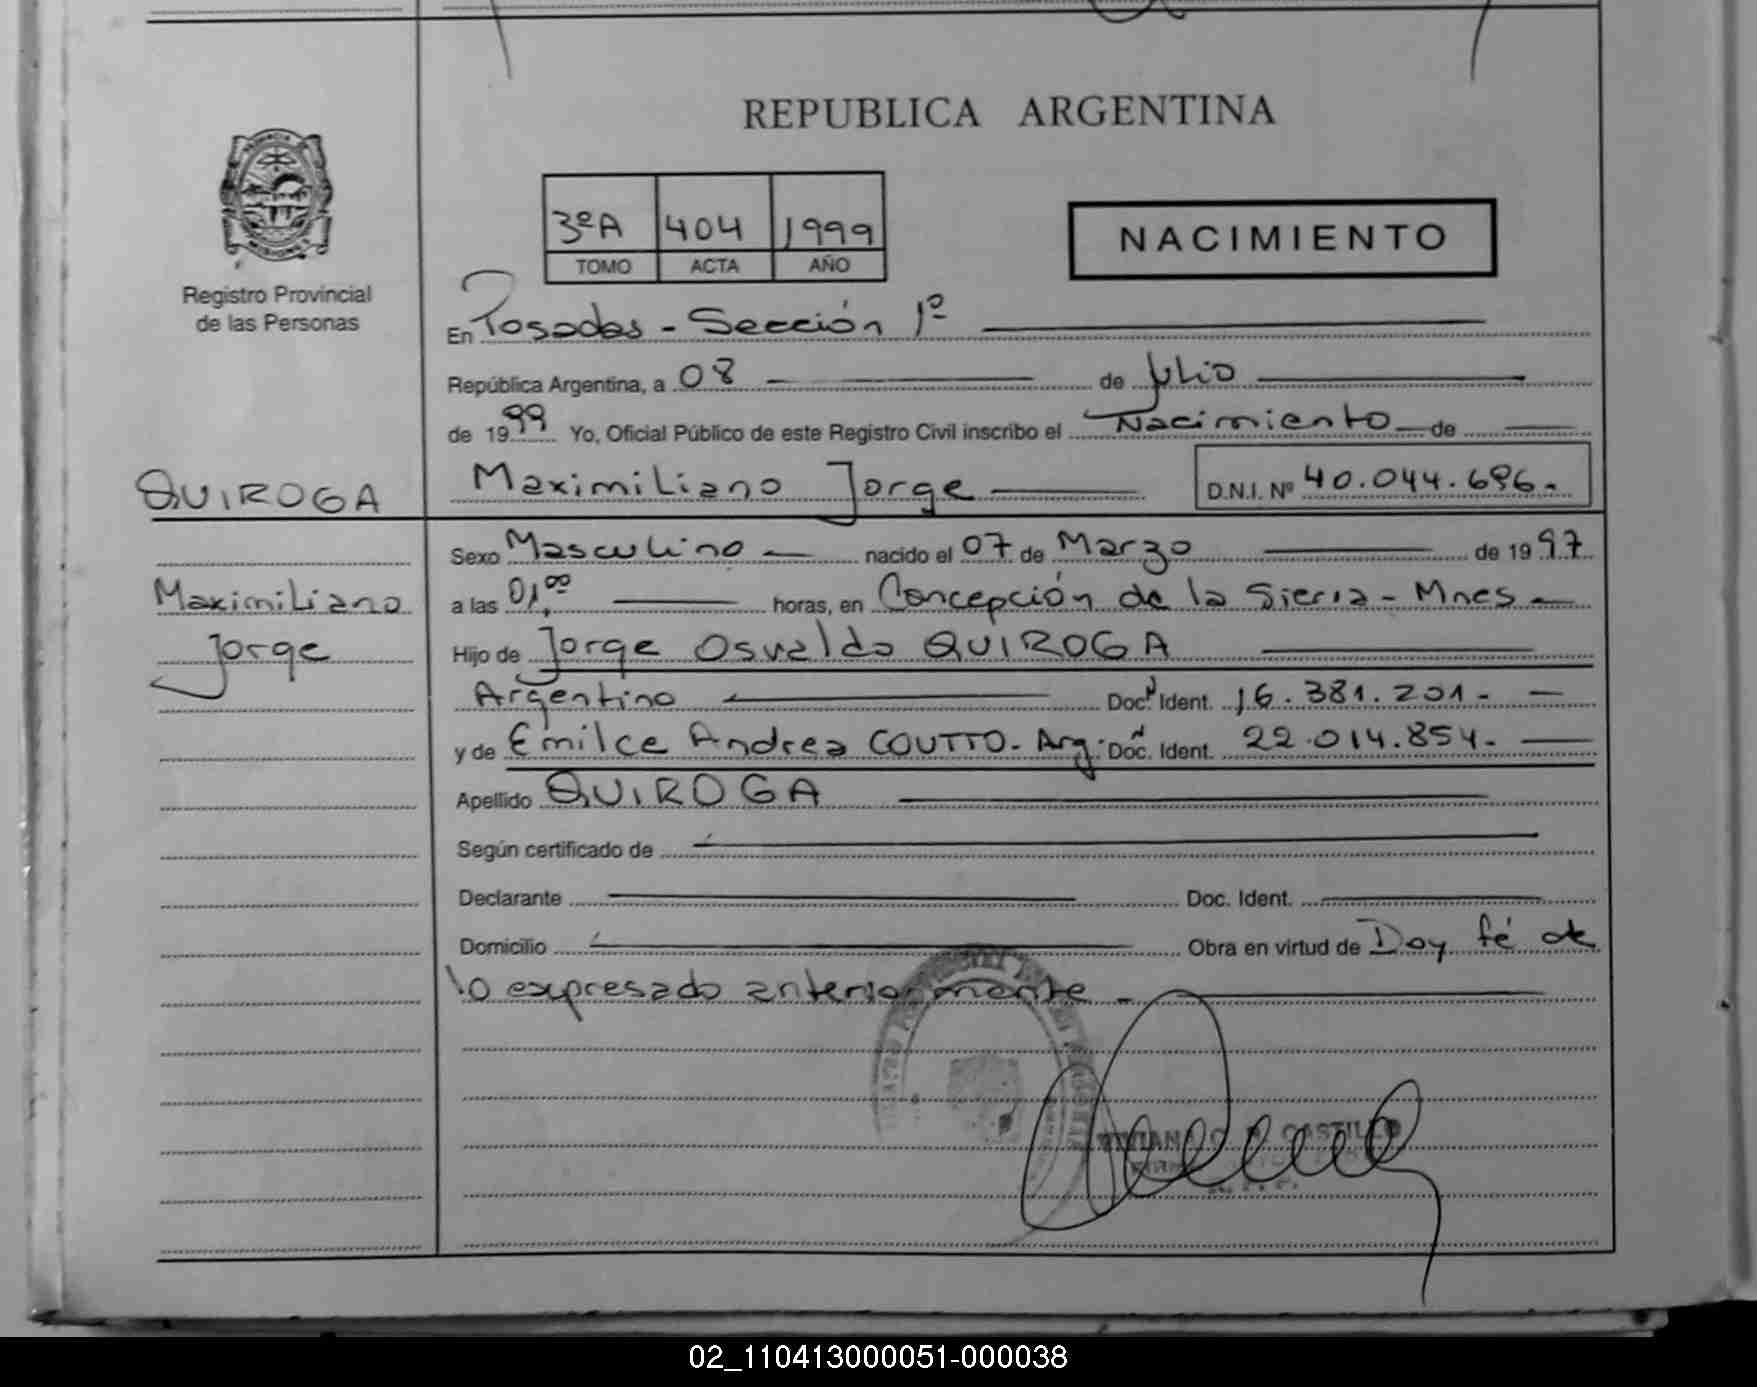 REPUBLICA ARGENTINA
3ºA 404 1999
TOMO ACTA AÑO
NACIMIENTO
Registro Provincial
de las Personas
En Posadas - Sección 1º
República Argentina, a 08 de Julio
de 1999 Yo, Oficial Público de este Registro Civil inscribo el Nacimiento de
QUIROGA
Maximiliano Jorge D.N.I. Nº 40.044.696.
Sexo Masculino nacido el 07 de Marzo de 1997
Maximiliano
Jorge
a las 01,00 horas, en Concepción de la Sierra - Mnes
Hijo de Jorge Osvaldo QUIROGA
Argentino Doc. Ident. 16.381.201.
y de Emilce Andrea COUTTO. Arg. Doc. Ident. 22.014.854.
Apellido QUIROGA
Según certificado de
Declarante Doc. Ident.
Domicilio Obra en virtud de Doy fé de
lo expresado anteriormente
CASTILLO
02_110413000051-000038